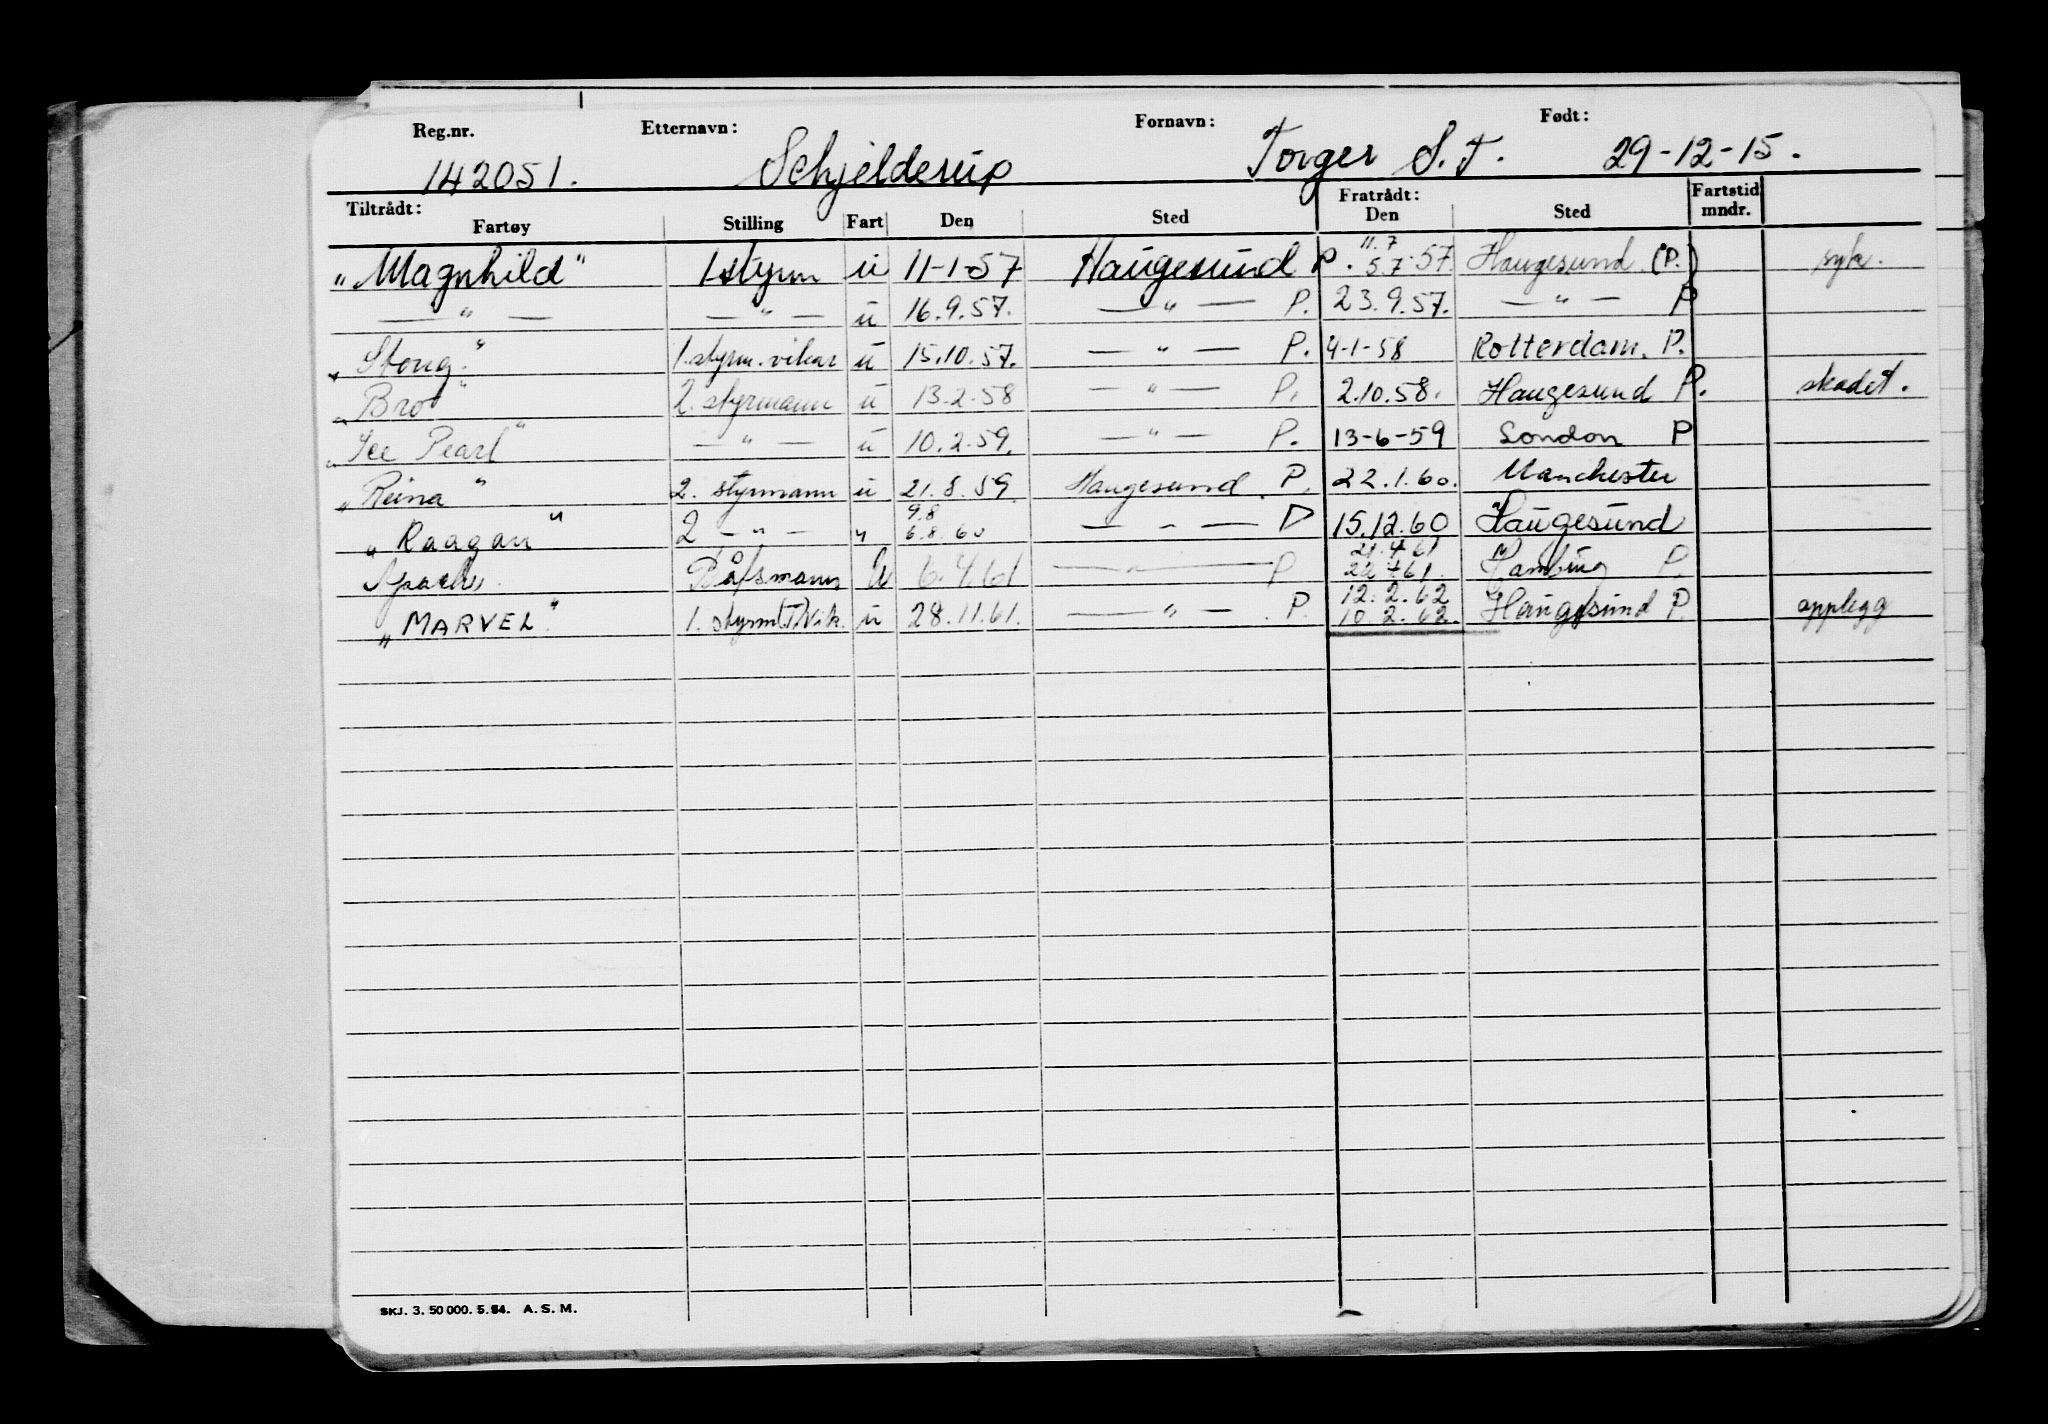 Reg.nr. Etternavn: Fornavn: Født:
142051. Schjelderup Torger S.T. 29-12-15.
Tiltrådt: Fratrådt: Fartstid
Fartøy Stilling Fart Den Sted Den Sted mndr.
"Magnhild" 1styrm ü 11-1-57 Haugesund P. 11.7 57.57. Haugesund. (P.) syk.
— " — — " — ü 16.9.57. — " — P. 23.9.57. — " — P
"Stong." 1.styrm.vikar ü 15.10.57. — " — P. 4-1-58 Rotterdam. P.
"Bro" 2. styrmann ü 13.2.58 — " — P. 2.10.58. Haugesund P. skadet.
"Ice Pearl" — " — ü 10.2.59. — " — P. 13-6-59 London P
"Reina" 2. styrmann ü 21.8.59. Haugesund. P. 22.1.60. Manchester
"Raagan" 2 — " — " 9.8 6.8.60 — " — P 15.12.60 Haugesund
Apache Båtsmann U 6.4.61 — " — P 21.4.61 22.4.61. Hamburg P.
"MARVEL." 1. styrm(T)Vik. ü 28.11.61. — " — . P. 12.2.62 10.2.62. Haugesund P. opplegg
SKJ. 3. 50 000. 5. 54. A. S. M.